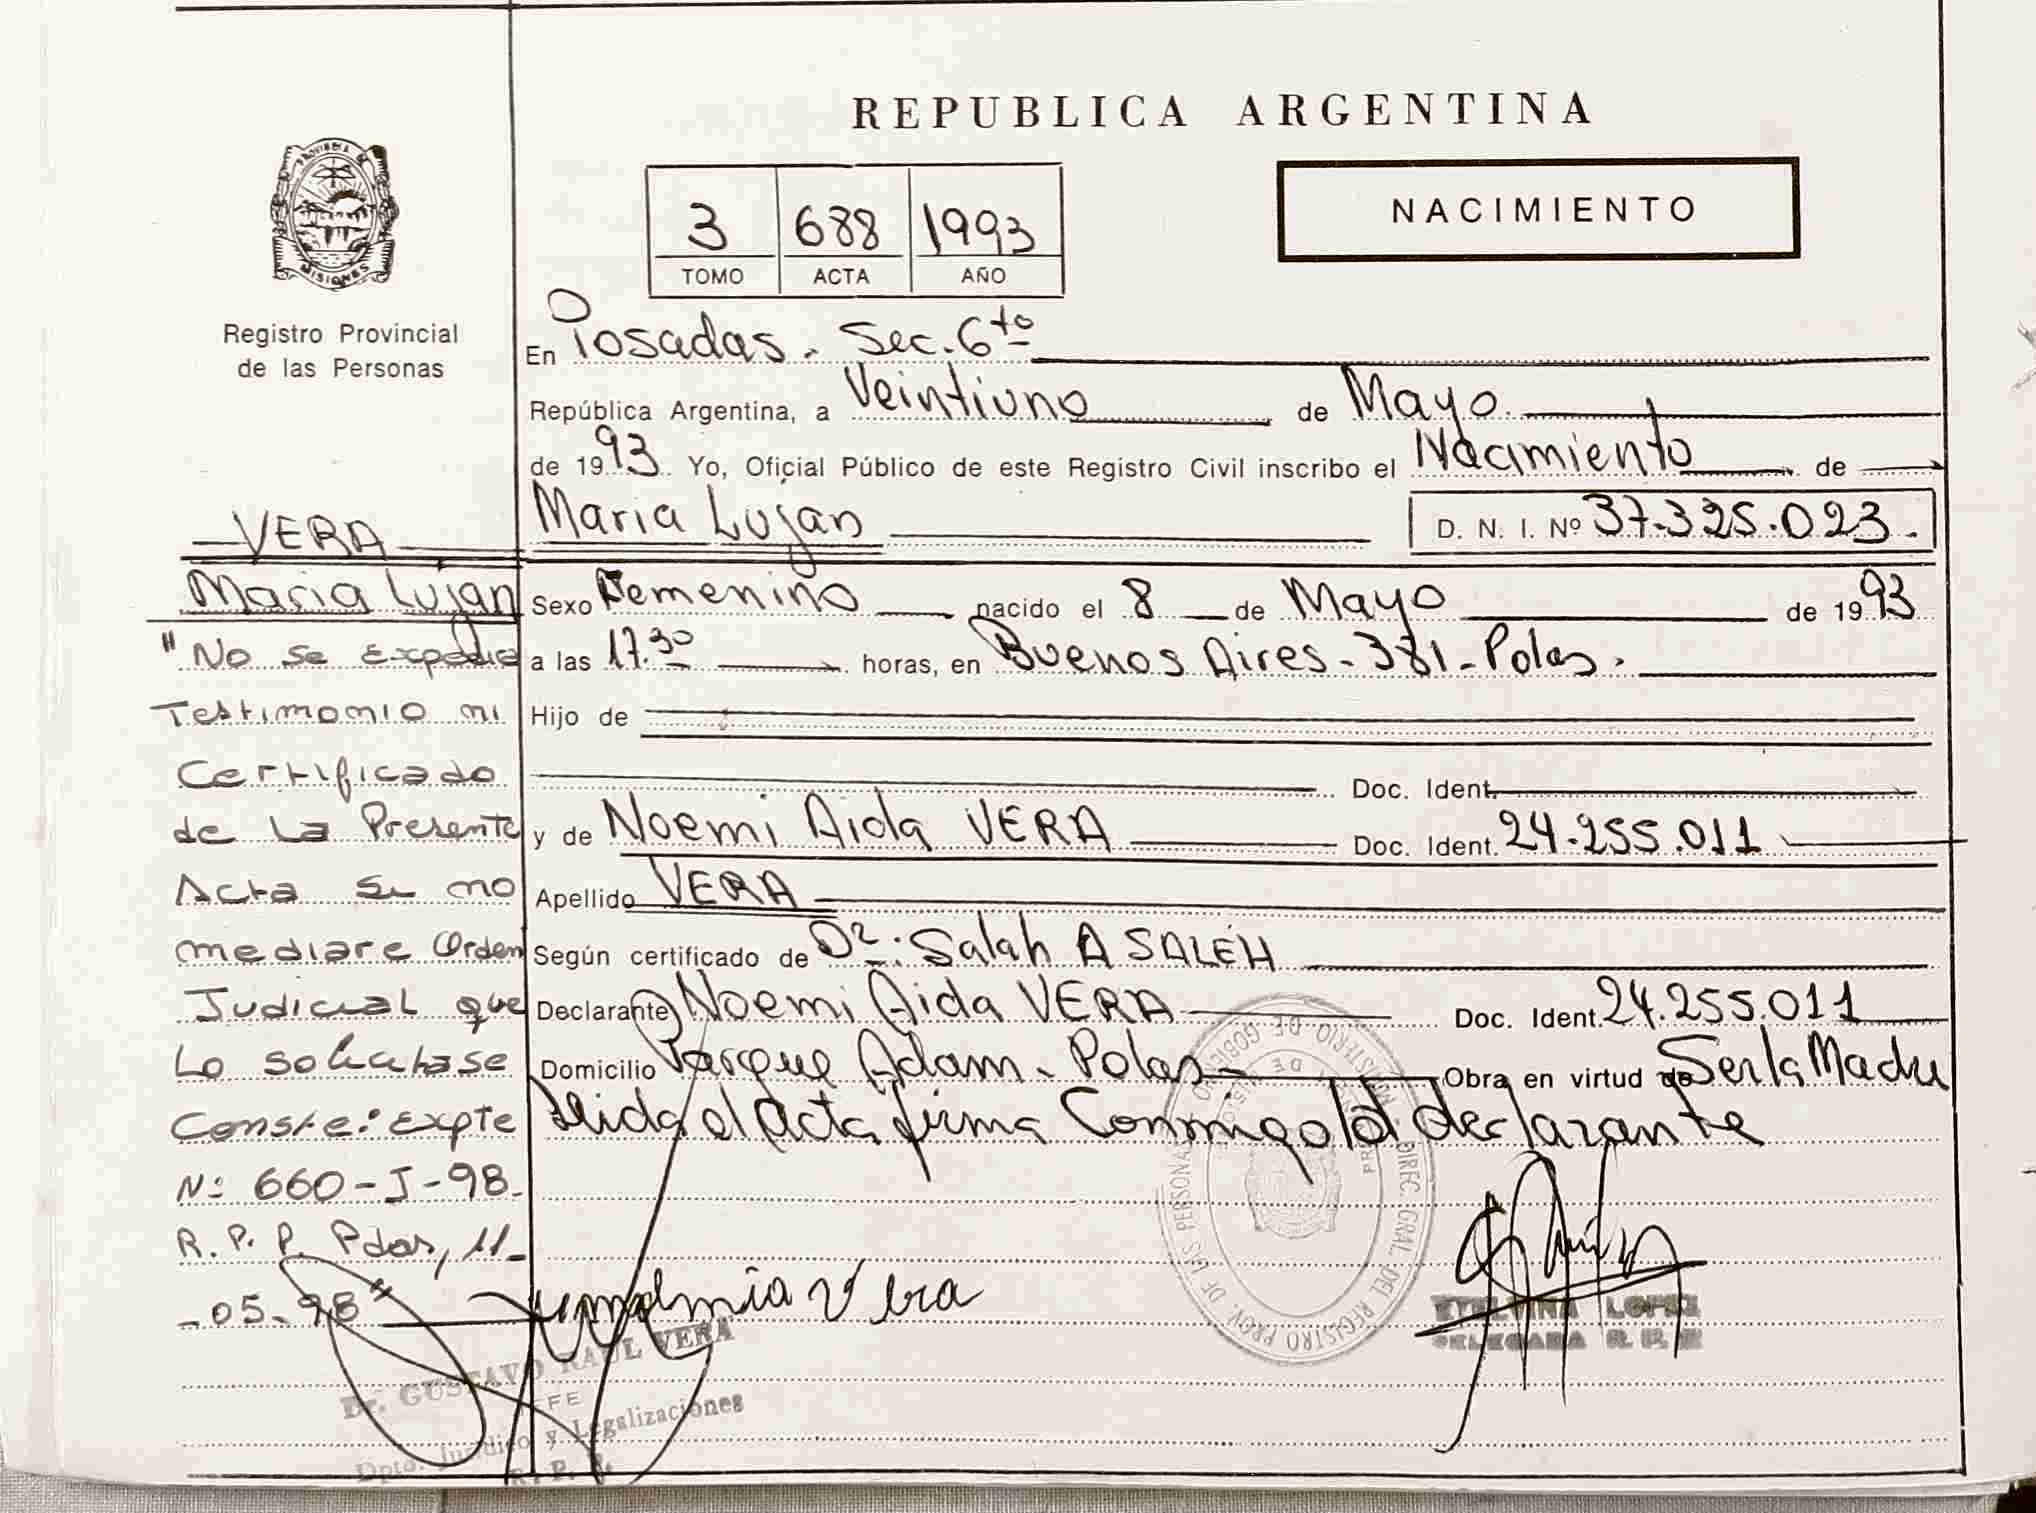 REPUBLICA ARGENTINA
PROVINCIA DE
MISIONES
Registro Provincial
de las Personas
3 688 1993
TOMO ACTA AÑO
NACIMIENTO
En Posadas. Sec. 6to
República Argentina, a Veintiuno de Mayo
de 1993 Yo, Oficial Público de este Registro Civil inscribo el Nacimiento de
Maria Lujan D. N. I. Nº 37.325.023.
Sexo Femenino nacido el 8 de Mayo de 1993
a las 17.30 horas, en Buenos Aires - 381 - Pdas.
Hijo de
Doc. Ident.
y de Noemi Aida VERA Doc. Ident. 24.255.011
Apellido VERA
Según certificado de Dr.: Salah A SALEH
Declarante Noemi Aida VERA Doc. Ident. 24.255.011
Domicilio Parque Adam - Pdas - Obra en virtud de Ser la Madre
Leida el acta firma Conmigo la declarante
VERA
Maria Lujan
"No se expedia
Testimonio ni
Certificado
de La Presente
Acta si no
mediare Orden
Judicial que
Lo solicitase
Conste: Expte
Nº 660-J-98.
R. P. P. Pdas, 11-
-05-98"
Vera
Dr. GUSTAVO RAUL VERA
JEFE
Dpto. Jurídico y Legalizaciones
R. P. P.
MINISTERIO DE GOBIERNO
DIREC. GRAL. DEL REGISTRO PROV. DE LAS PERSONAS
LOPEZ
DELEGADA R. P. P.